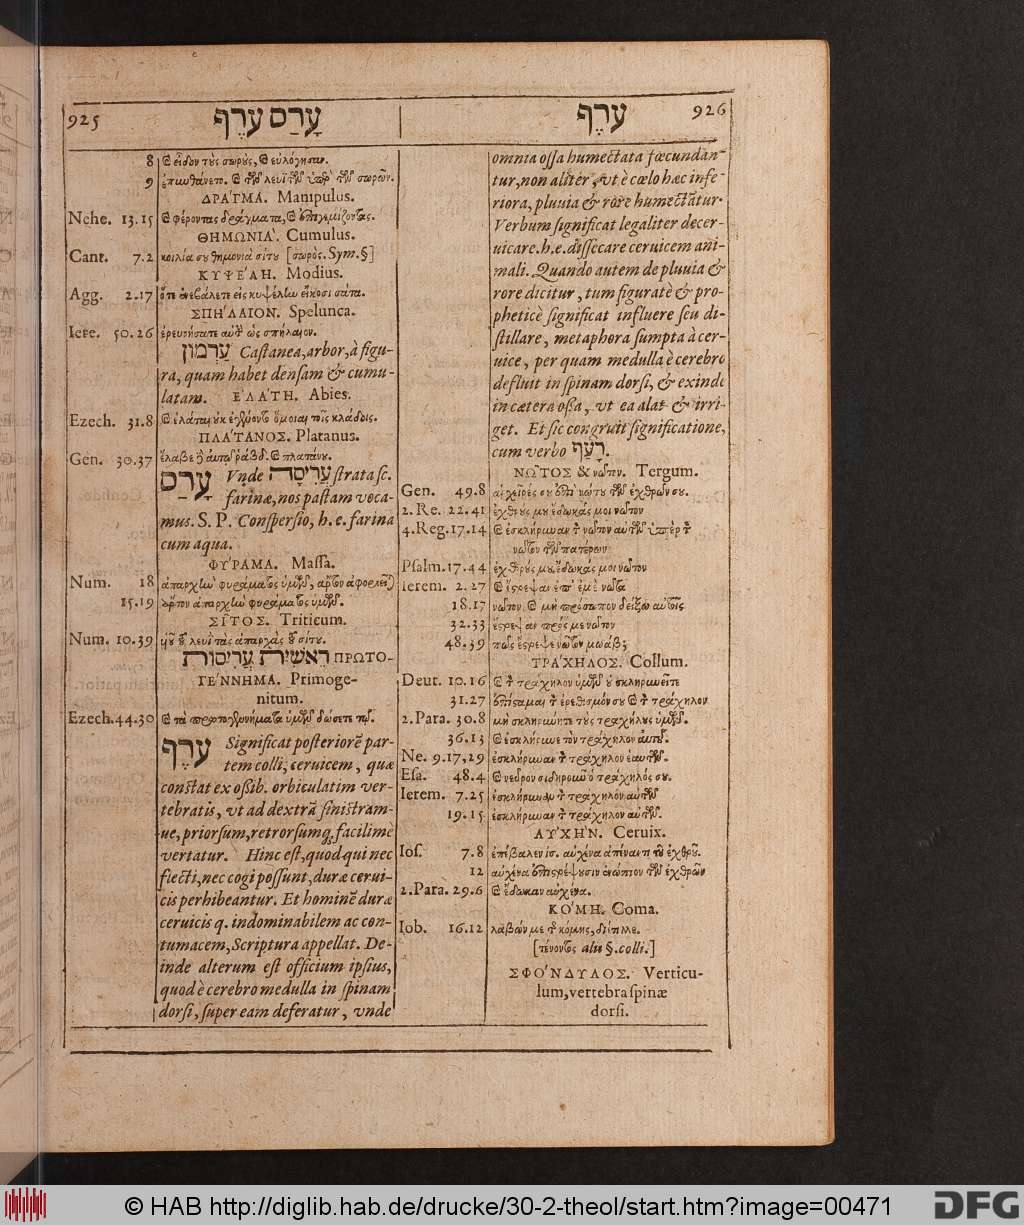 925 עָרַס עֹרֶף
עֹרֶף 926
8 & εἶδον τὺς σωρὺς, & εὐλόγησαν.
9
ΔΡΑ΄ΓΜΑ. Manipulus.
Nehe. 13.15 & φέροντας δράγματα, & ἐπιγεμίζοντας.
ΘΗΜΩΝΙΑ΄. Cumulus.
Cant. 7.2 κοιλία συ θημονιὰ σίτυ [σωρὸς. Sym.§]
ΚΥΨΕ΄ΛΗ. Modius.
Agg. 2.17 ὅτε ἐνεβάλετε εἰς κυψέλην εἴκοσι σάτα.
ΣΠΗ΄ΛΑΙΟΝ. Spelunca.
Iere. 50.26 ἐρευνήσατε αὐτὴν ὡς σπήλαιον.
עַרְמוֹן Castanea, arbor, à figu-
ra, quam habet densam & cumu-
latam. ΕΛΑ΄ΤΗ. Abies.
Ezech. 31.8
ΠΛΑ΄ΤΑΝΟΣ. Platanus.
Gen. 30.37
עָרַס Vnde עֲרִיסָה strata sc.
farinæ, nos pastam voca-
mus. S. P. Conspersio, h. e. farina
cum aqua.
ΦΥ΄ΡΑΜΑ. Massa.
Num. 18
15.19 ἄρτον ἀπαρχὴν φυράματος ὑμῶν.
ΣΙ͂ΤΟΣ. Triticum.
Num. 10.39
רֵאשִׁית עֲרִיסוֹת ΠΡΩΤΟ-
ΓΕ΄ΝΝΗΜΑ. Primoge-
nitum.
Ezech. 44.30 & τὰ πρωτογεννήματα ὑμῶν δώσετε
עֹרֶף Significat posteriorē par-
tem colli, cervicem, quæ
constat ex oßib. orbiculatim ver-
tebratis, vt ad dextrā sinistram-
ue, priorsum, retrorsumq; facilimè
vertatur. Hinc est, quod qui nec
flecti, nec cogi possunt, duræ cerui-
cis perhibeantur. Et hominē duræ
ceruicis q. indominabilem ac con-
tumacem, Scriptura appellat. De-
inde alterum est officium ipsius,
quod è cerebro medulla in spinam
dorsi, super eam deferatur, vnde
omnia ossa humectata fœcundan-
tur, non aliter, vt è cœlo hæc infe-
riora, pluuia & rore humectātur.
Verbum significat legaliter decer-
uicare. h.e. dissecare ceruicem ani-
mali. Quando autem de pluuia &
rore dicitur, tum figuratè & pro-
pheticè significat influere seu di-
stillare, metaphora sumpta à cer-
uice, per quam medulla è cerebro
defluit in spinam dorsi, & exinde
in cætera oßa, vt ea alat & irri-
get. Et sic congruit significatione,
cum verbo רָעַף.
ΝΩ͂ΤΟΣ & νῶτον. Tergum.
Gen. 49.8 αἱ χεῖρές συ ἐπὶ νώτυ τῶν ἐχθρῶν συ.
2. Re. 22.41 ἐχθρὺς μυ ἔδωκάς μοι νῶτον
4. Reg. 17.14 & ἐσκλήρυναν τὸν νῶτον αὐτῶν ὑπὲρ τὸν
νῶτον τῶν πατέρων
Psalm. 17.44 ἐχθρύς μυ ἔδωκάς μοι νῶτον
Ierem. 2.27 & ἔστρεψαν ἐπ᾽ ἐμὲ νῶτα
18.17 νῶτον, & μὴ πρόσωπον δείξω αὐτοῖς
32.33
48.39 πῶς ἔστρεψε νῶτον μωάβ;
ΤΡΑ΄ΧΗΛΟΣ. Collum.
Deut. 10.16 & τὸν τράχηλον ὑμῶν ὐ σκληρυνεῖτε
31.27
2. Para. 30.8 μὴ σκληρύνητε τὺς τραχήλυς ὑμῶν.
36.13 & ἐσκλήρυνε τὸν τράχηλον αὐτῦ.
Ne. 9.17,29 ἐσκλήρυναν τὸν τράχηλον
Esa. 48.4 & νεῦρον σιδηροῦν ὁ τράχηλός συ.
Ierem. 7.25 ἐσκλήρυναν τὸν τράχηλον αὐτῶν
19.15 ἐσκλήρυναν τὸν τράχηλον αὐτῶν.
ΑΥΧΗ΄Ν. Ceruix.
Ios. 7.8
12 αὐχένα ἐπιστρέψυσιν ἐνώπιον τῶν ἐχθρῶν
2. Para. 29.6 & ἔδωκαν αὐχένα.
ΚΟ΄ΜΗ. Coma.
Iob. 16.12 λαβών με τῆς κόμης, διέτιλε.
[τένοντος alii §. colli.]
ΣΦΟ΄ΝΔΥΛΟΣ. Verticu-
lum, vertebra spinæ
dorsi.
© HAB http://diglib.hab.de/drucke/30-2-theol/start.htm?image=00471
DFG